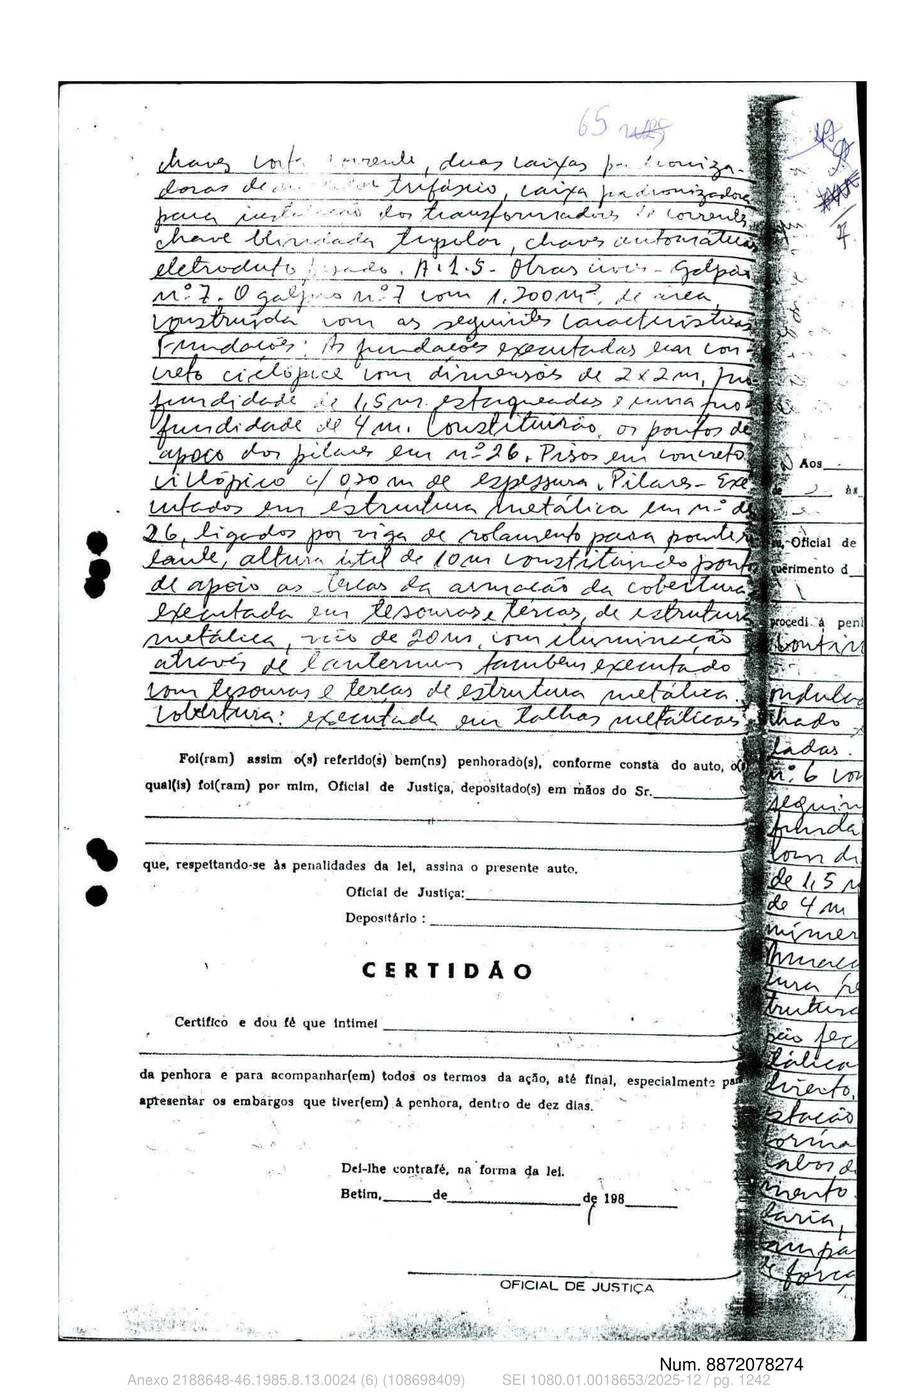 65
chaves corta corrente, duas caixas padroniza-
doras de trifásico, caixa padronizadora
para instalação dos transformadores de corrente
chave blindada tripolar, chaves automáticas
eletroduto pesado. A.1.5- Obras civis - Galpão
nº 7. O galpão nº 7 com 1.200 m², de área,
construída com as seguintes características
Fundações: As fundações executadas em con-
creto ciclópico com dimensões de 2x2m, pro
fundidade de 1,5m estaqueadas e uma pro-
fundidade de 4m. Constituirão, os pontos de
apoio dos pilares em nº 26. Pisos em concreto
ciclópico c/ 0,20 m de espessura. Pilares - Exe
cutados em estrutura metálica em nº de
26, ligados por viga de rolamento para ponte
lante, altura útil de 10m constituindo ponto
de apoio as terças da armação da cobertura
executada em tesouras e terças, de estrutura
metálica, vão de 20m, com iluminação
através de lanternins também executado
com tesouras e terças de estrutura metálica.
Cobertura: executada em talhas metálicas
Foi(ram) assim o(s) referido(s) bem(ns) penhorado(s), conforme consta do auto, o(s)
qual(is) foi(ram) por mim, Oficial de Justiça, depositado(s) em mãos do Sr.
que, respeitando-se às penalidades da lei, assina o presente auto.
Oficial de Justiça:
Depositário :
CERTIDÃO
Certifico e dou fé que intimei
da penhora e para acompanhar(em) todos os termos da ação, até final, especialmente para
apresentar os embargos que tiver(em) à penhora, dentro de dez dias.
Dei-lhe contrafé, na forma da lei.
Betim, de de 198
OFICIAL DE JUSTIÇA
Aos
às
Oficial de
querimento d
procedi à penh
ondulad
lhado
ladas.
nº 6 com
seguin
funda
com di
de 1,5 m
de 4 m
número
tura
trutura
tálica
stação
forma
cabos d
mento
laria,
de força,
Num. 8872078274
Anexo 2188648-46.1985.8.13.0024 (6) (108698409) SEI 1080.01.0018653/2025-12 / pg. 1242